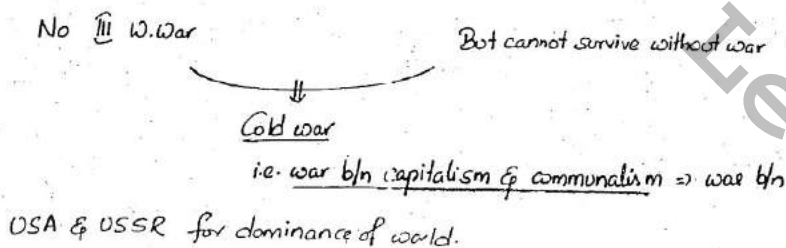 No III W.War But cannot survive without war
⇓
Cold war
i.e. war b/n capitalism & communalism => war b/n
USA & USSR for dominance of world.
Le